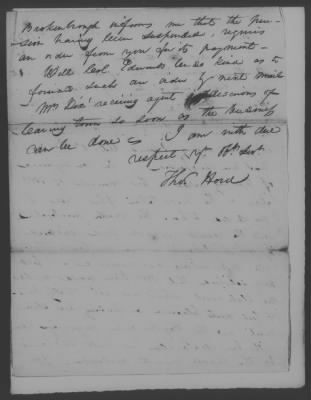 Brokenbrough informs me that the pen-
sion having been suspended requires
an order from you for its payment -
Will Col. Edwards be so kind as to
forward such an order by next mail
Mrs receiving agent is desirous of
leaving town so soon as the business
can be done. I am with due
respect Yr Obt Servt
Thos Hord